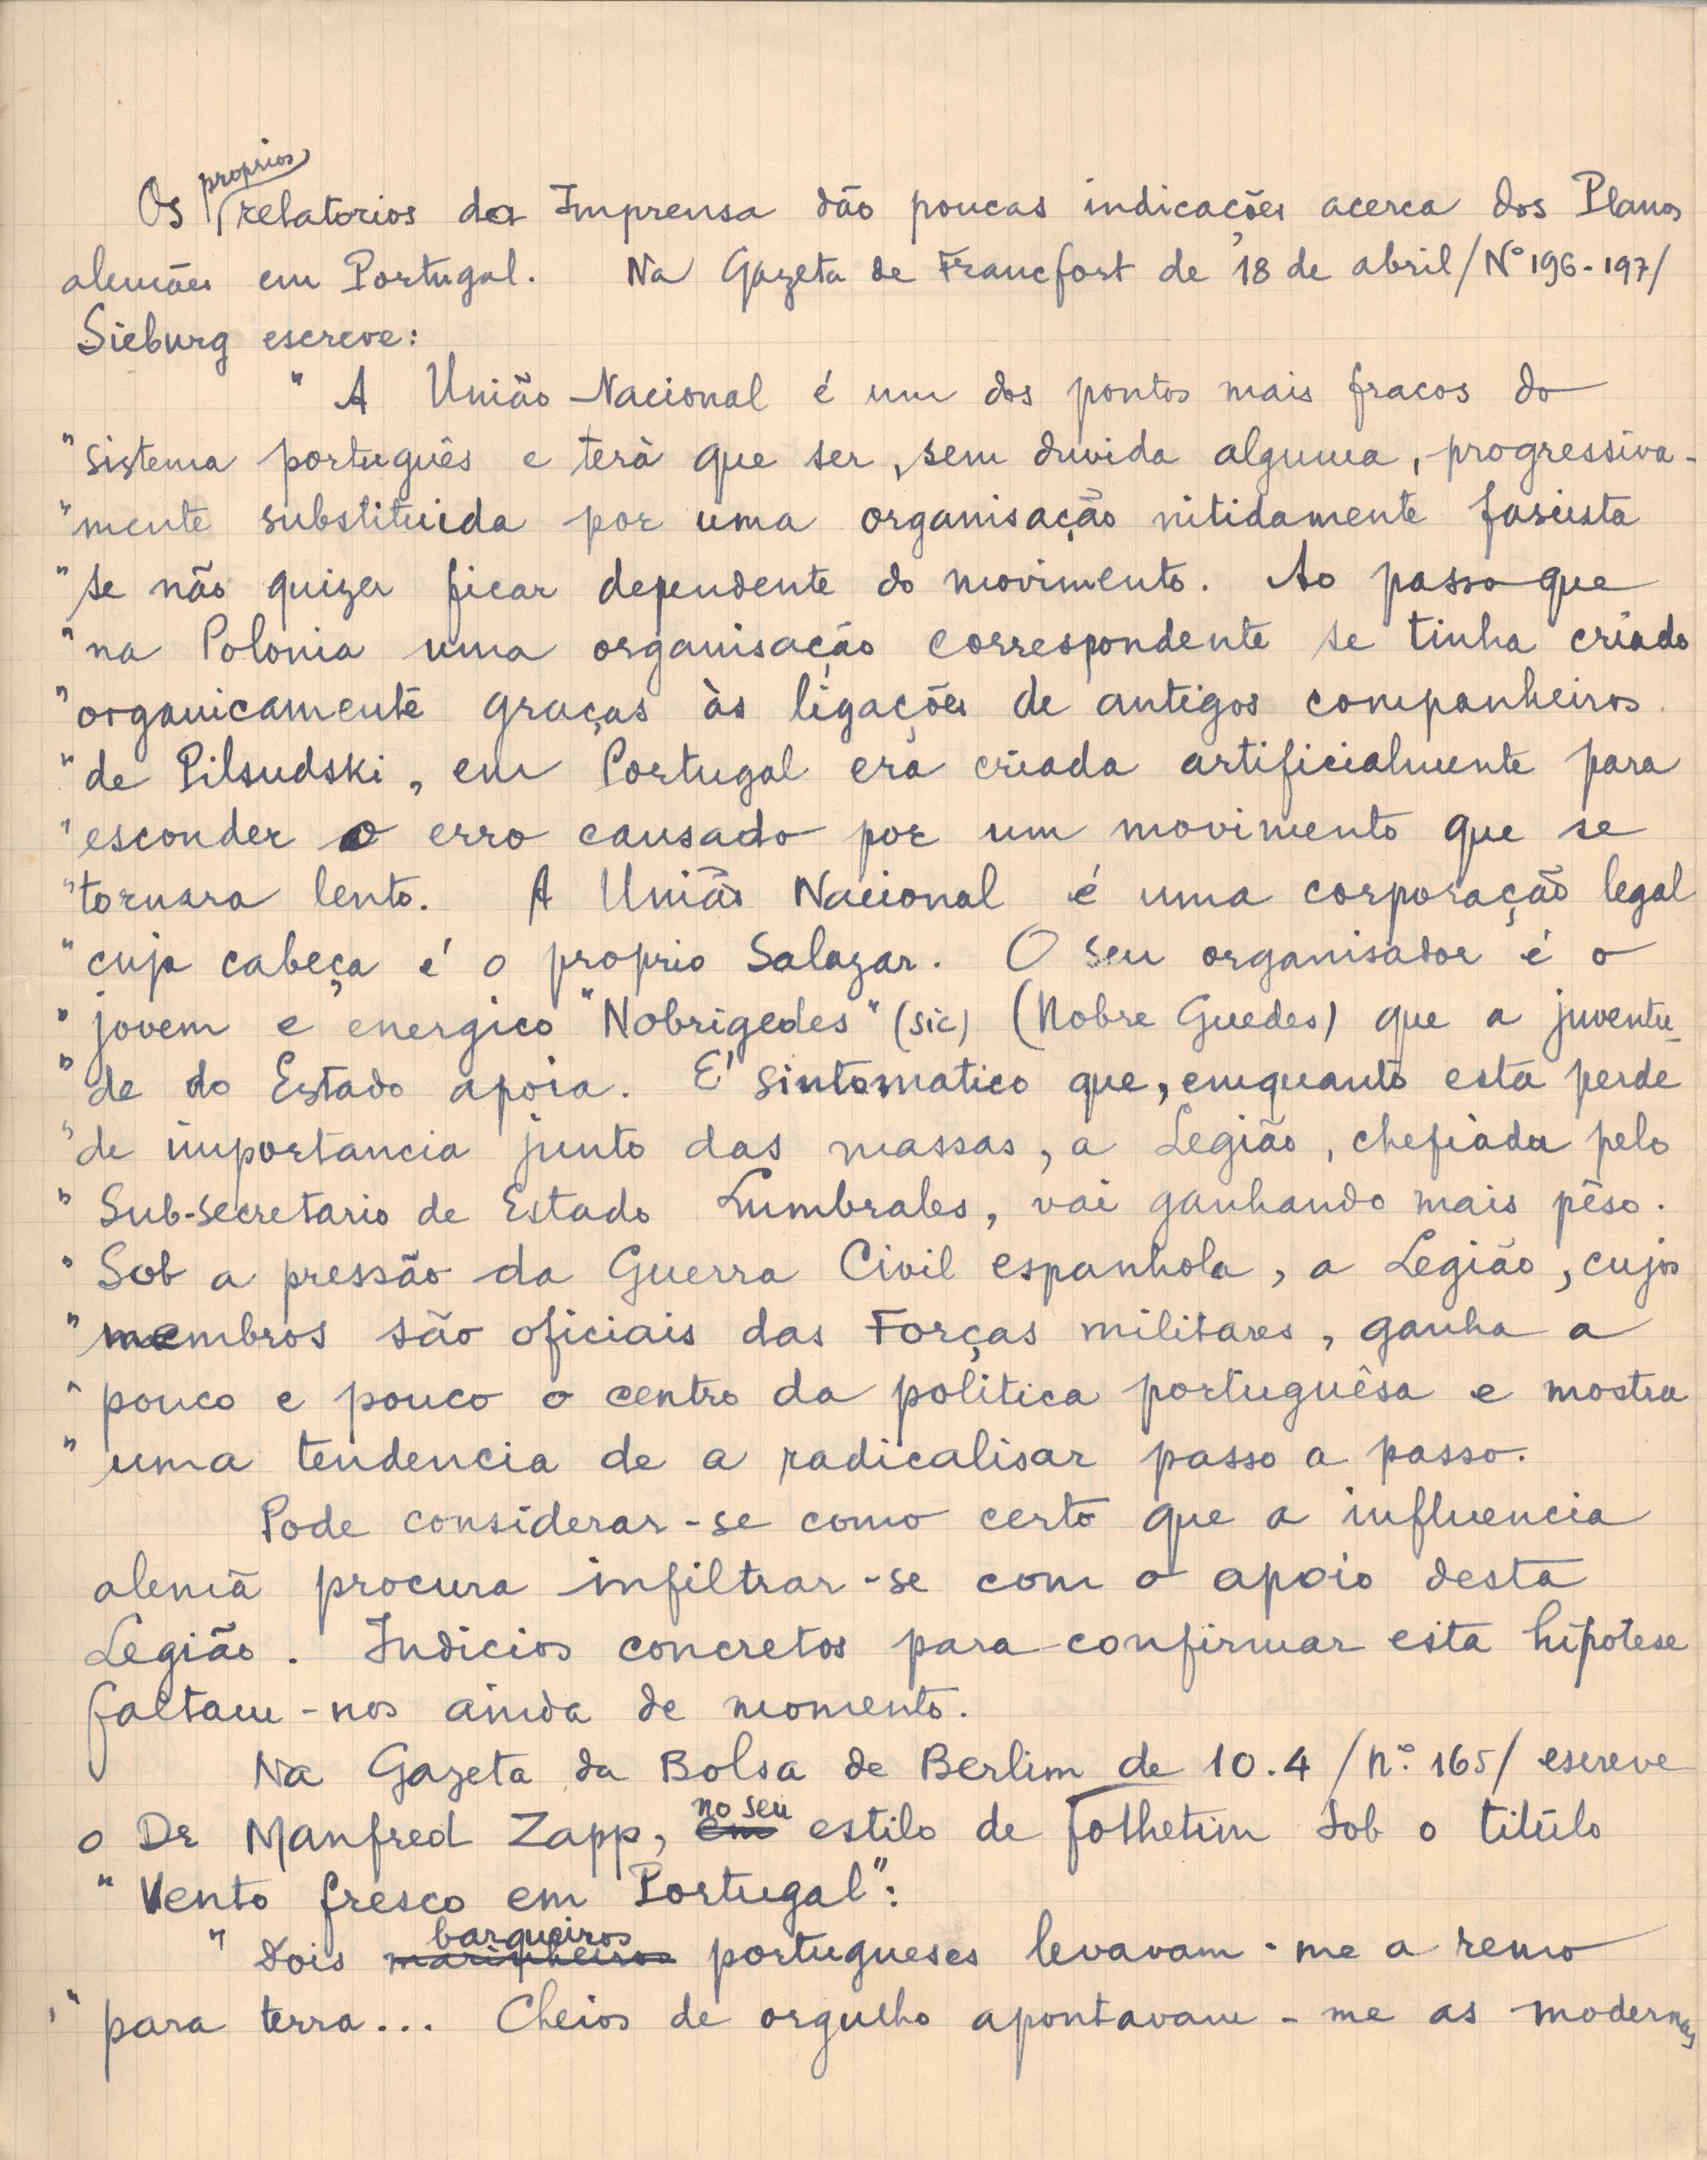 Os proprios relatorios da Imprensa dão poucas indicações acerca dos Planos
alemães em Portugal. Na Gazeta de Francfort de 18 de abril /Nº 196-197/
Sieburg escreve:
" A União Nacional é um dos pontos mais fracos do
" sistema português e terà que ser, sem duvida alguma, progressiva-
" mente substituida por uma organisação nitidamente fasista
" se não quizer ficar dependente do movimento. Ao passo que
" na Polonia uma organisação correspondente se tinha criado
" organicamente graças às ligações de antigos companheiros
" de Pilsudski, em Portugal era criada artificialmente para
" esconder o erro causado por um movimento que se
" tornara lento. A União Nacional é uma corporação legal
" cuja cabeça é o proprio Salazar. O seu organisador é o
" jovem e energico "Nobrigedes" (sic) (Nobre Guedes) que a juventu-
" de do Estado apoia. E' sintomatico que, emquanto esta perde
" de importancia junto das massas, a Legião, chefiada pelo
" Sub-secretario de Estado Lumbrales, vai ganhando mais pêso.
" Sob a pressão da Guerra Civil espanhola, a Legião, cujos
" membros são oficiais das Forças militares, ganha a
" pouco e pouco o centro da politica portuguêsa e mostra
" uma tendencia de a radicalisar passo a passo.
Pode considerar-se como certo que a influencia
alemã procura infiltrar-se com o apoio desta
Legião. Indicios concretos para confirmar esta hipotese
faltam-nos ainda de momento.
Na Gazeta da Bolsa de Berlim de 10.4 /nº 165/ escreve
o Dr Manfred Zapp, em no seu estilo de folhetim sob o titúlo
" Vento fresco em Portugal":
" Dois marinheiros barqueiros portugueses levavam-me a remo
" para terra... Cheios de orgulho apontavam-me as modernas